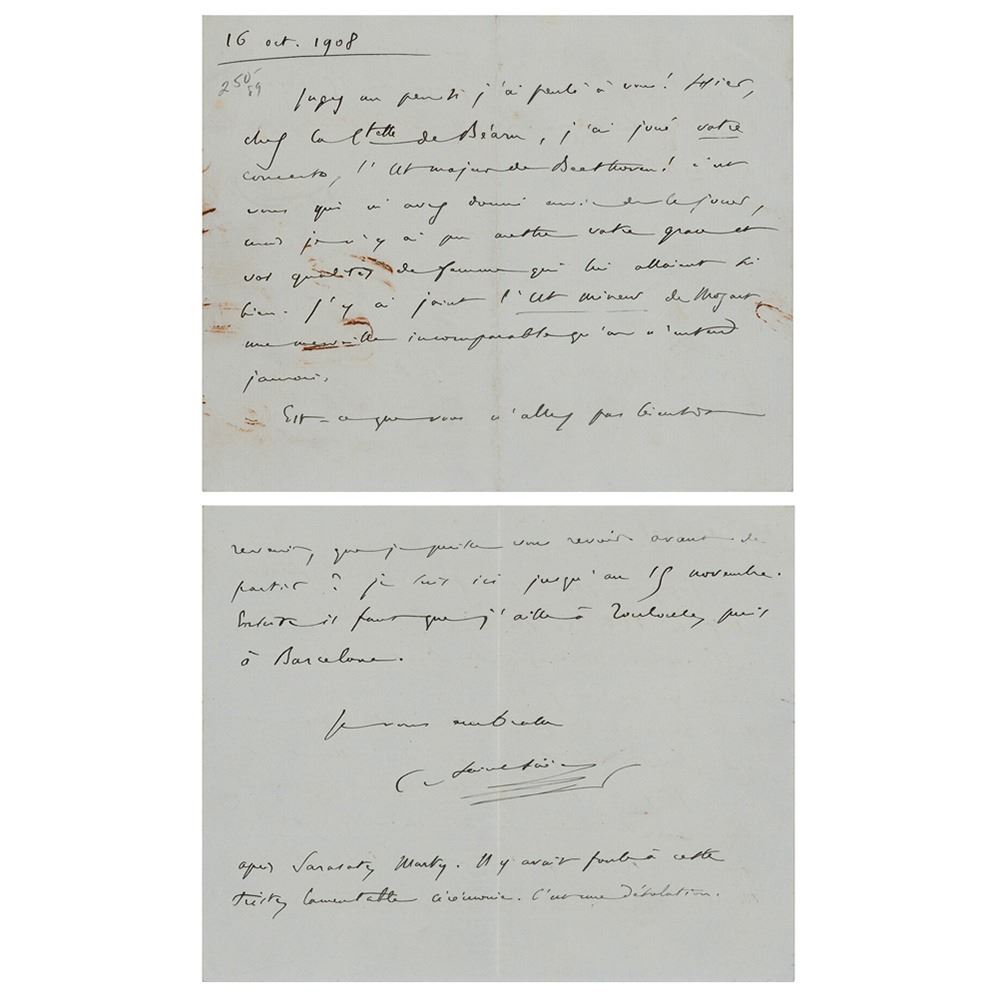 16 oct. 1908
250-
89
Jugez un peu si j'ai pensé à vous! Hier,
chez la Ctesse de Béarn, j'ai joué votre
concerto, l'Ut majeur de Beethoven! c'est
vous qui m'avez donné envie de le jouer,
mais je n'y ai pu mettre votre grace et
vos qualités de femme qui lui allaient si
bien. J'y ai joint l'Ut mineur de Mozart
une merveille incomparable qu'on n'entend
jamais.
Est-ce que vous n'allez pas bientôt
revenir, que je puisse vous revoir avant de
partir? je suis ici jusqu'au 15 novembre.
Ensuite il faut que j'aille à Toulouse, puis
à Barcelone.
Je vous embrasse
C. Saint-Saëns
après Sarasate, Marty. Il y avait foule à cette
triste, lamentable cérémonie. C'est une désolation.